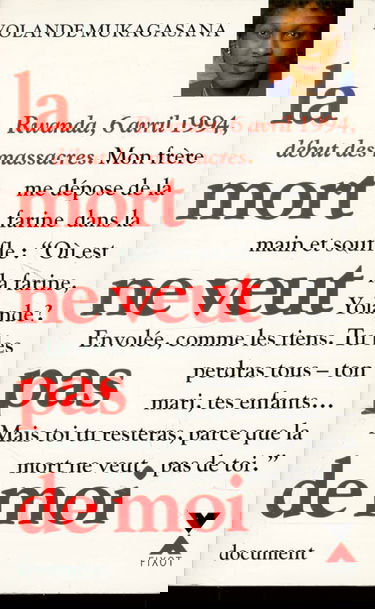 YOLANDE MUKAGASANA
la
mort
ne veut
pas
de moi
Rwanda, 6 avril 1994,
début des massacres. Mon frère
me dépose de la
farine dans la
main et souffle : “Où est
la farine,
Yolande ?
Envolée, comme les tiens. Tu les
perdras tous – ton
mari, tes enfants...
Mais toi tu resteras, parce que la
mort ne veut, pas de toi.”
la
mort
ne veut
pas
de moi
FIXOT
document